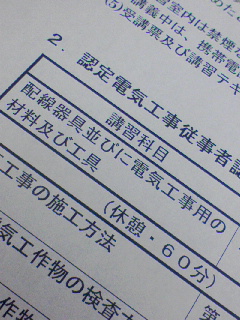 室内は禁煙
講義中は、携帯電
(5)受講票及び講習テキ
2．認定電気工事従事者認
講習科目
配線器具並びに電気工事用の
材料及び工具
(休憩・60分)
工事の施工方法
第
気工作物の検査方
作物